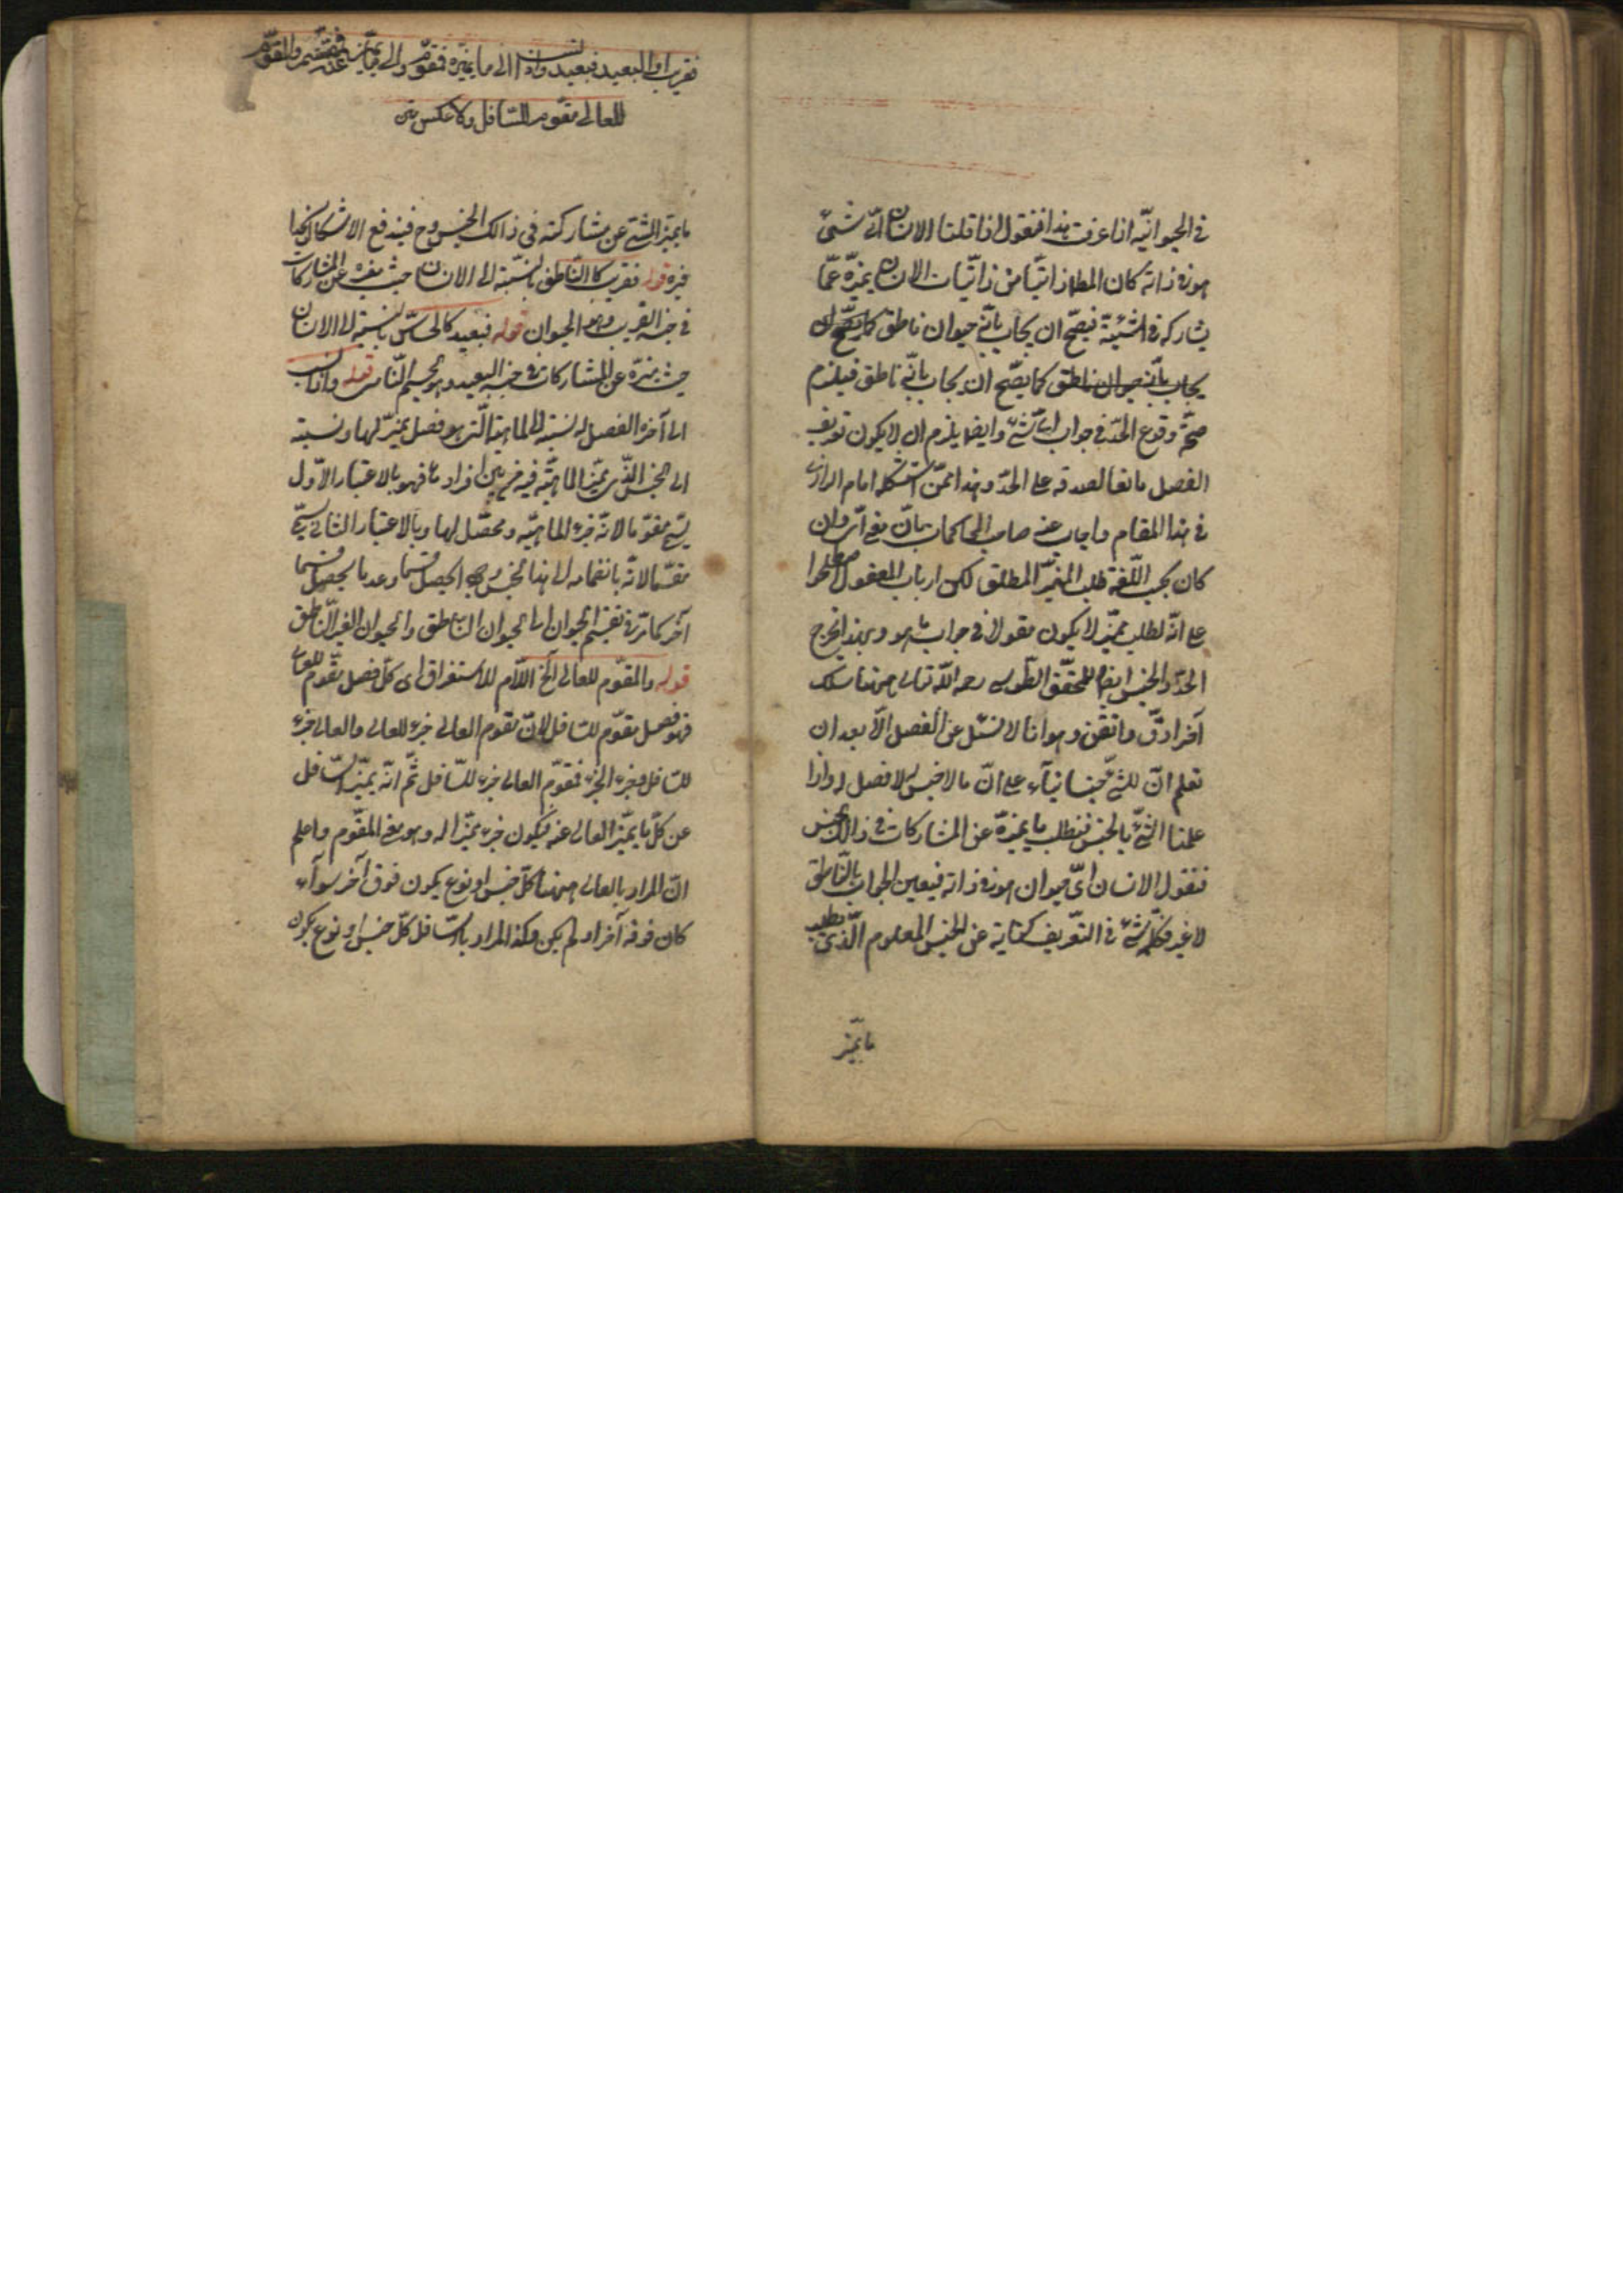 في الحيوانيّة اذا عرفت هذا فنقول اذا قلنا الانسان ايّ شيئ
هو في ذاته كان المطلوب ذاتيّا من ذاتيّات الانسان يميزّه عمّا
يشاركه في الشيئيّة فيصّح ان يجاب بانّه حيوان ناطق كما يصّح ان
يجاب بانّه حيوان ناطق كما يصّح ان يجاب بانّه ناطق فيلزم
صحّة وقوع الحدّ في جواب ايّ شئ وايضا يلزم ان لا يكون تعريف
الفصل مانعا لصدقه على الحدّ وهذا ممّن استشكله امام الرازي
في هذا المقام واجاب عنه صاحب المحاكمات بانّ معنى ايّ وان
كان بحسب اللّغة طلب المميّز المطلق لكن ارباب المعقول اصطلحوا
على انّه لطلب مميّز لا يكون مقولا في جواب ما هو وبهذا يخرج
الحدّ والجنس ايضا للمحقّق الطّوسي رحمه اللّه تعالى ههنا مسلك
آخر ادقّ واتقن وهو انا لا نسئل عن الفصل الّا بعد ان
نعلم انّ للشئ جنسا بناء على انّ ما لا جنس له لا فصل له واذا
علمنا الشئ بالجنس فنطلب ما يميزّه عن المشاركات في ذالك الجنس
فنقول الانسان ايّ حيوان هو في ذاته فيعين الجواب بالنّاطق
لا غير فكلمة شئ في التعّريف كناية عن الجنس المعلوم الّذى يطلب
ما يميّز
فقريب او البعيد فبعيد واذا نسب الى ما يميّزه فمقوّم والى ما يميّز عنه فمقسّم والمقوّم
للعالي مقوّم للسّافل ولا عكس متن
ما يميّز الشئ عن مشاركته في ذالك الجنس وح فيندفع الاشكال بحذا
فيره قوله فقريب كالنّاطق بالنّسبة الى الانسان حيث يميزه عن المشاركات
في جنسه القريب وهو الحيوان قوله فبعيد كالحسّاس بالنسبة الى الانسان
حيث يميزّه عن المشاركات في جنسه البعيد وهو الجسم النّامى قوله واذا نسب
الى آخره الفصل له نسبة الى الماهيّة الّتى هو فصل مميّز لها ونسبة
الى الجنس الذّى يميّز الماهيّة فيه من بين افراده فهو بالاعتبار الاوّل
يسّمى مقوّما لانّه جزء الماهيّة ومحصّل لها وبالاعتبار الثاني يسّمى
مقسّما لانّه بانضمامه الى هذا الجنس وجودا يحصل قسما وعدما يحصل قسما
آخر كما ترى في تقسيم الحيوان الى الحيوان الناطق والحيوان الغير النّاطق
قوله والمقوّم للعالى الخ اللاّم للاستغراق اى كلّ فصل مقّوم للعالى
فهو فصل مقوّم للسّافل لانّ مقوم العالى جزء للعالى والعالى جزء
للسّافل وجزء الجزء جزء فمقوّم العالى جزء للسّافل ثمّ انّه يميّز السّافل
عن كلّ ما يميّز العالى عنه فيكون جزء مميّزا له وهو معنى المقوّم واعلم
انّ المراد بالعالى ههنا كلّ جنس او نوع يكون فوق آخر سوآء
كان فوقه آخر او لم يكن وكذا المراد بالسّافل كلّ جنس او نوع يكون